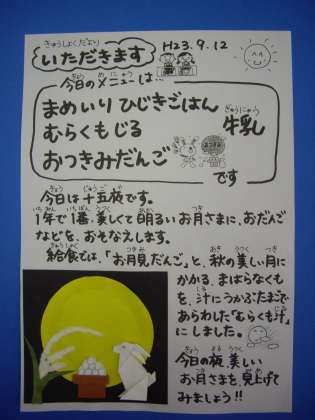 きゅうしょくだより
いただきます
H23.9.12
今日のメニューは…
まめいり ひじきごはん
むらくもじる
おつきみだんご
ぎゅうにゅう
牛乳
です
今日は十五夜です。
1年で1番、美しくて明るいお月さまに、おだんご
などを、おそなえします。
給食では、「お月見だんご」と、秋の美しい月に
かかる、まばらなくも
を、汁にうかぶたまごで
あらわした「むらくも汁」
にしました。
今日の夜、美しい
お月さまを、見上げて
みましょう!!